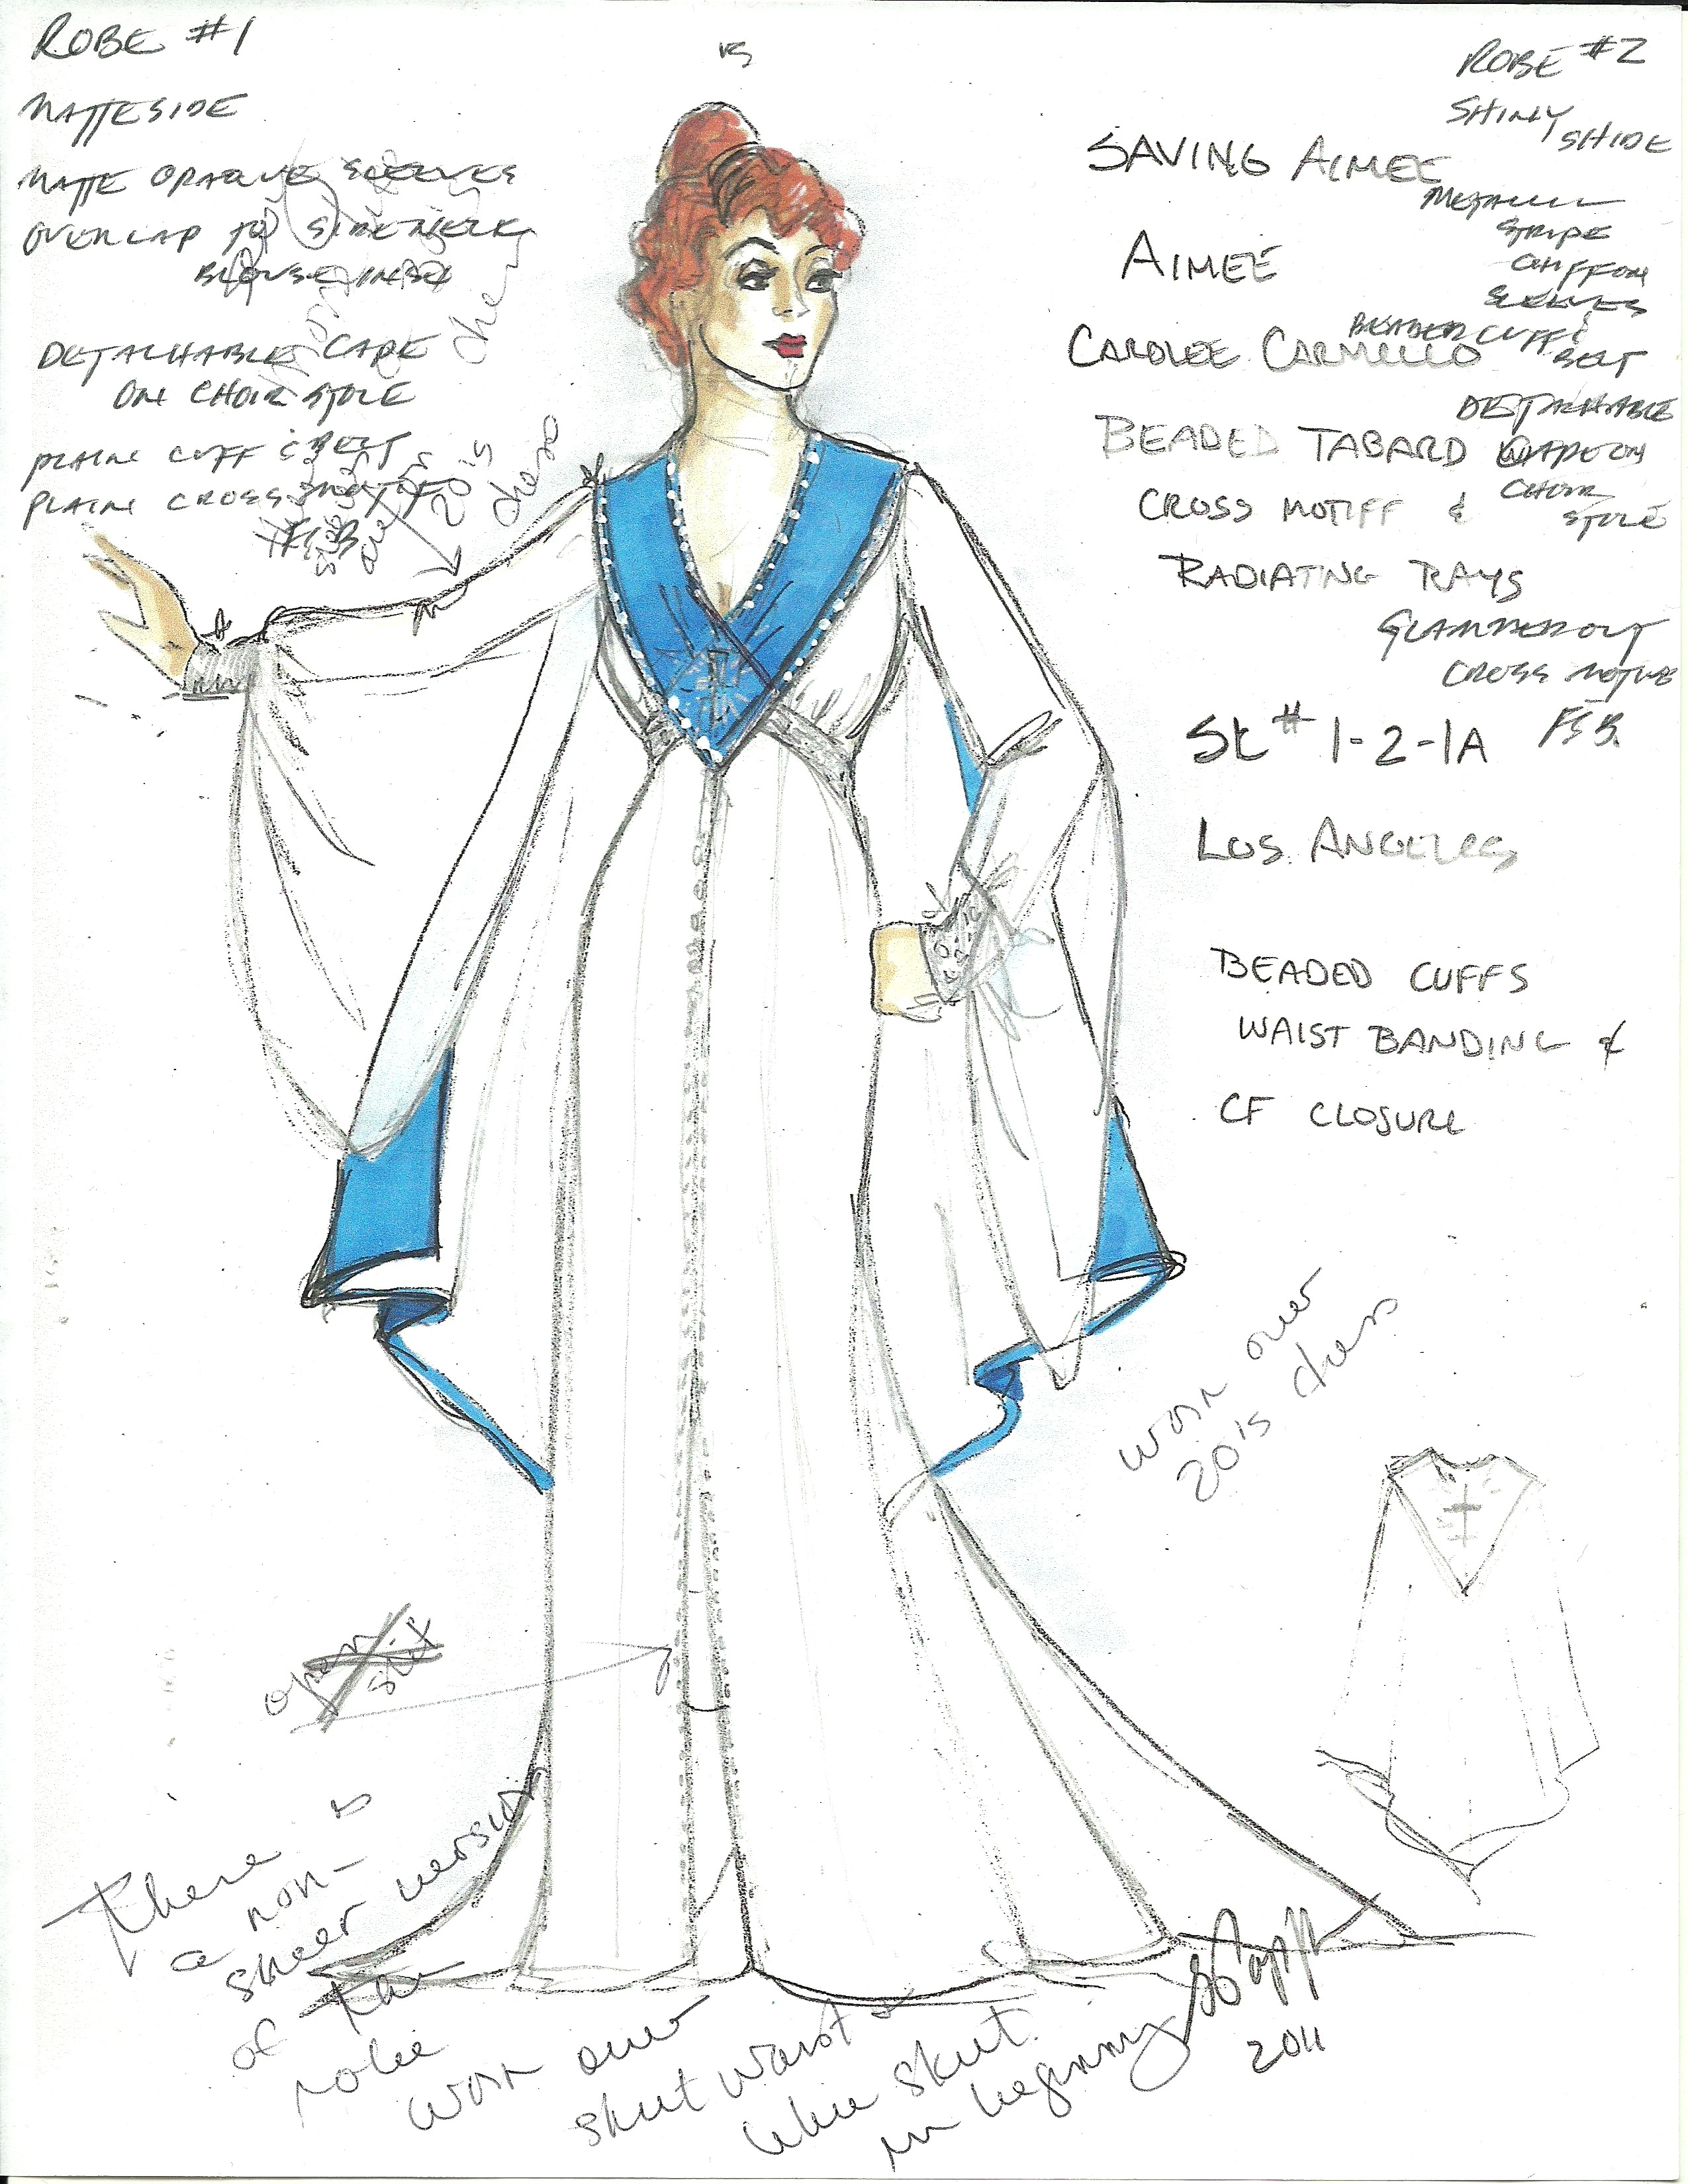 ROBE #1
MATTESIDE
MATTE OPAQUE SLEEVES
OVERLAP TO
BLOUSE
DETACHABLE CAPE
ON CHOIR STOLE
PLAIN CUFF & BELT
PLAIN CROSS MOTIF
F&B
sleeves
20's
dress
VS
ROBE #2
SHINY
SHIDE
METALLIC
STRIPE
CHIFFON
SLEEVES
BEADED CUFF &
BELT
DETACHABLE
CAPE ON
CHOIR
STOLE
GLAMMED OUT
CROSS MOTIVE
F&B.
SAVING AIMEE
AIMEE
CAROLEE CARMELLO
BEADED TABARD
CROSS MOTIFF &
RADIATING RAYS
SK# 1-2-1A
LOS ANGELES
BEADED CUFFS
WAIST BANDING &
CF CLOSURE
worn over
20's dress
open
slit
there is
a non-
sheer version
of the
robe
worn over
shirt waist &
skirt
in beginning
2011